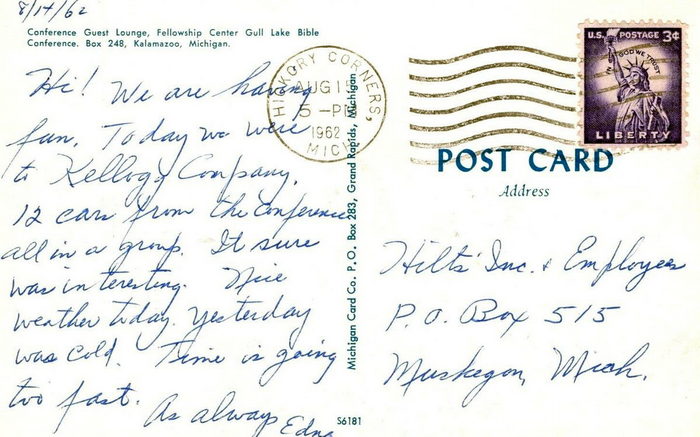 8/14/62
Conference Guest Lounge, Fellowship Center Gull Lake Bible
Conference. Box 248, Kalamazoo, Michigan.
Hi! We are having
fun. Today we were
to Kellogg Company,
12 cars from the Conference
all in a group. It sure
was interesting. Nice
weather today. Yesterday
was cold. Time is going
too fast.
As always
Edna
HICKORY CORNERS,
AUG 15
5 -PM
1962
MICH
Michigan Card Co., P.O. Box 283, Grand Rapids, Michigan
S6181
U.S. POSTAGE 3¢
IN GOD WE TRUST
LIBERTY
POST CARD
Address
Hilts' Inc. & Employees
P.O. Box 515
Muskegon, Mich.